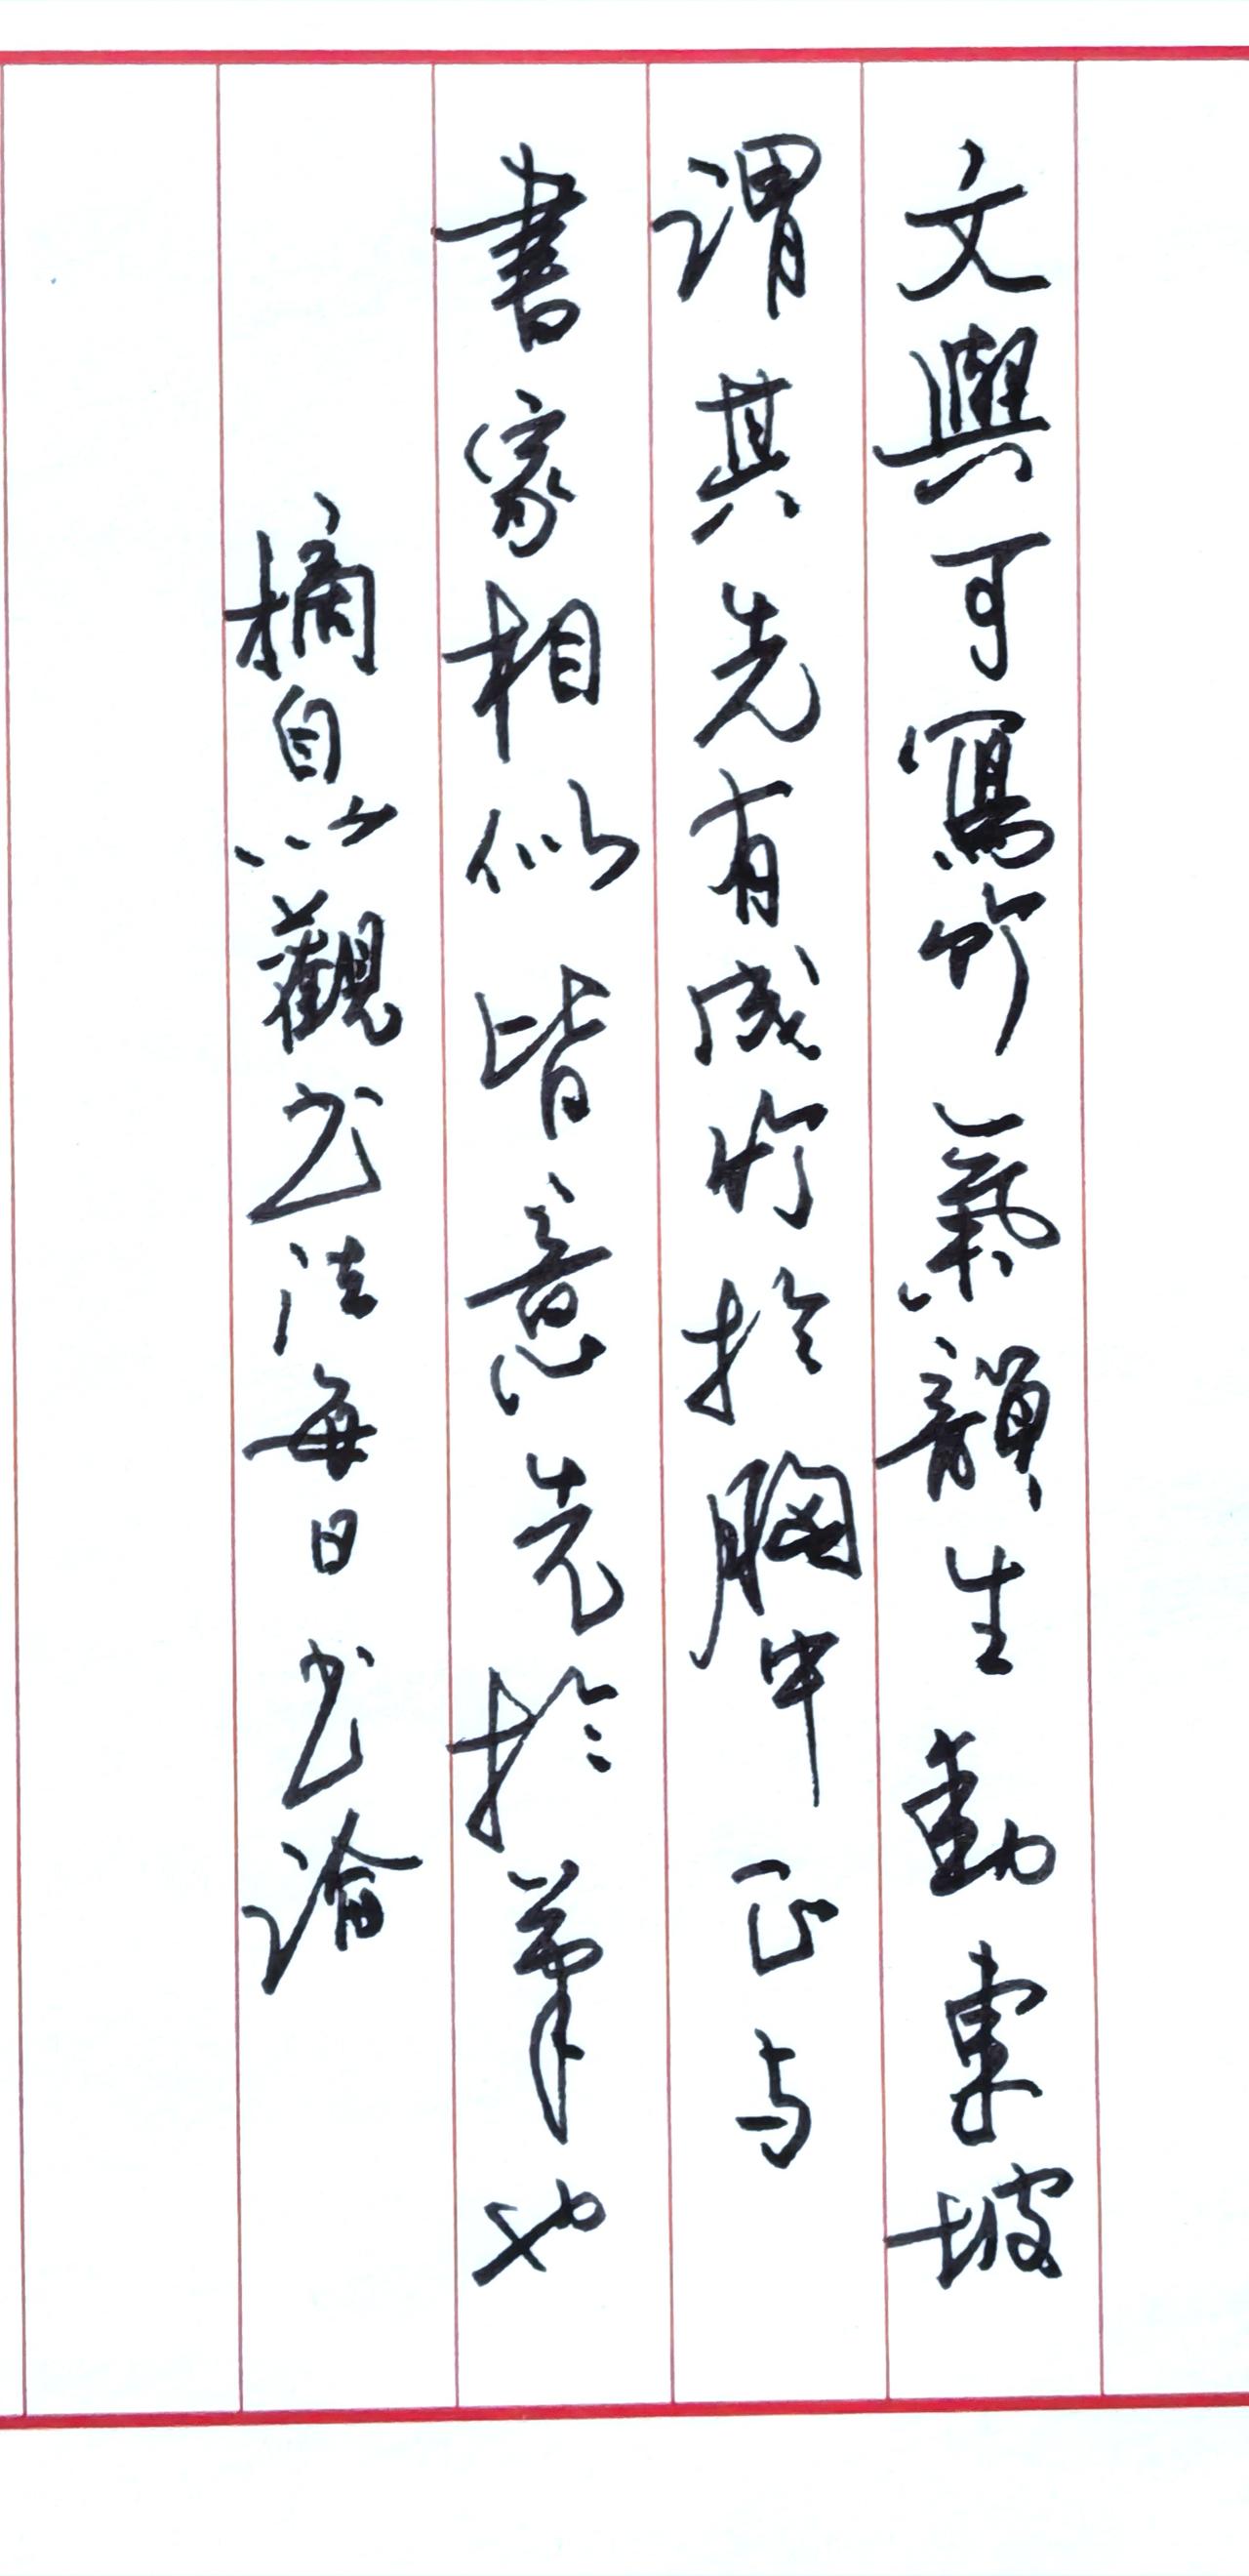 文與可寫竹氣韻生動東坡
謂其先有成竹於胸中正与
書家相似皆意先於筆也
摘自以觀书法每日书論